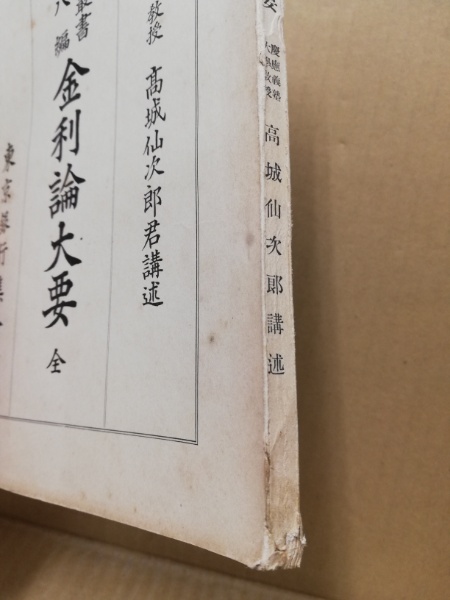 慶應義塾
大學教授
高城仙次郎講述
教授 高城仙次郎君講述
叢書
八編
金利論大要 全
東京銀行集